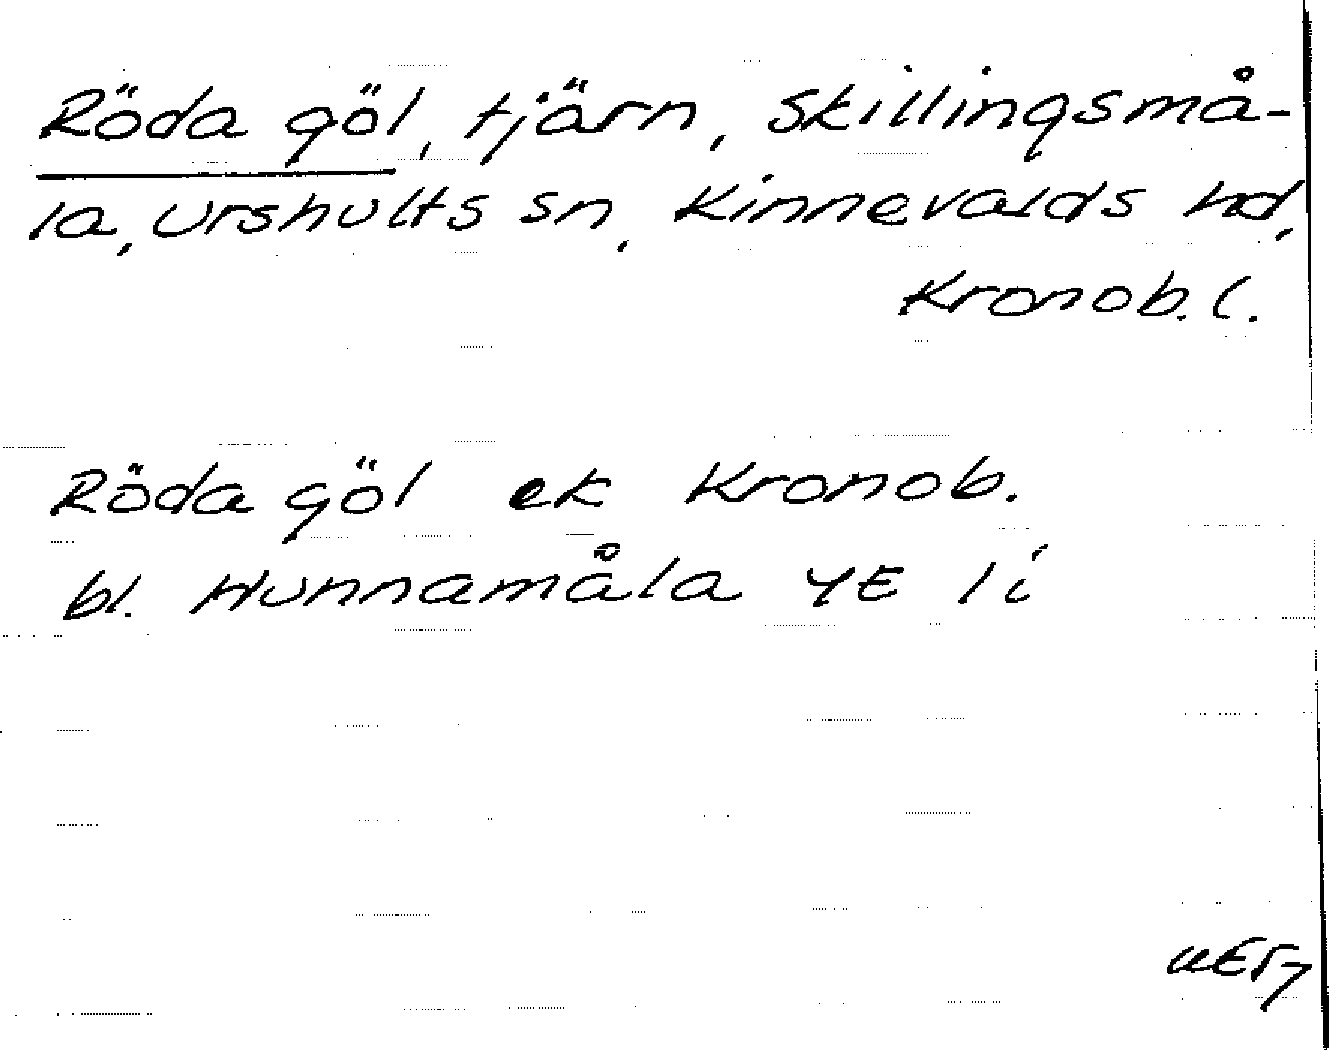 Röda göl, tjärn, Skillingsmå-
la, Urshults sn, Kinnevalds hd,
Kronob. l.
Röda göl ek Kronob.
bl. Hunnamåla 4E 1 i